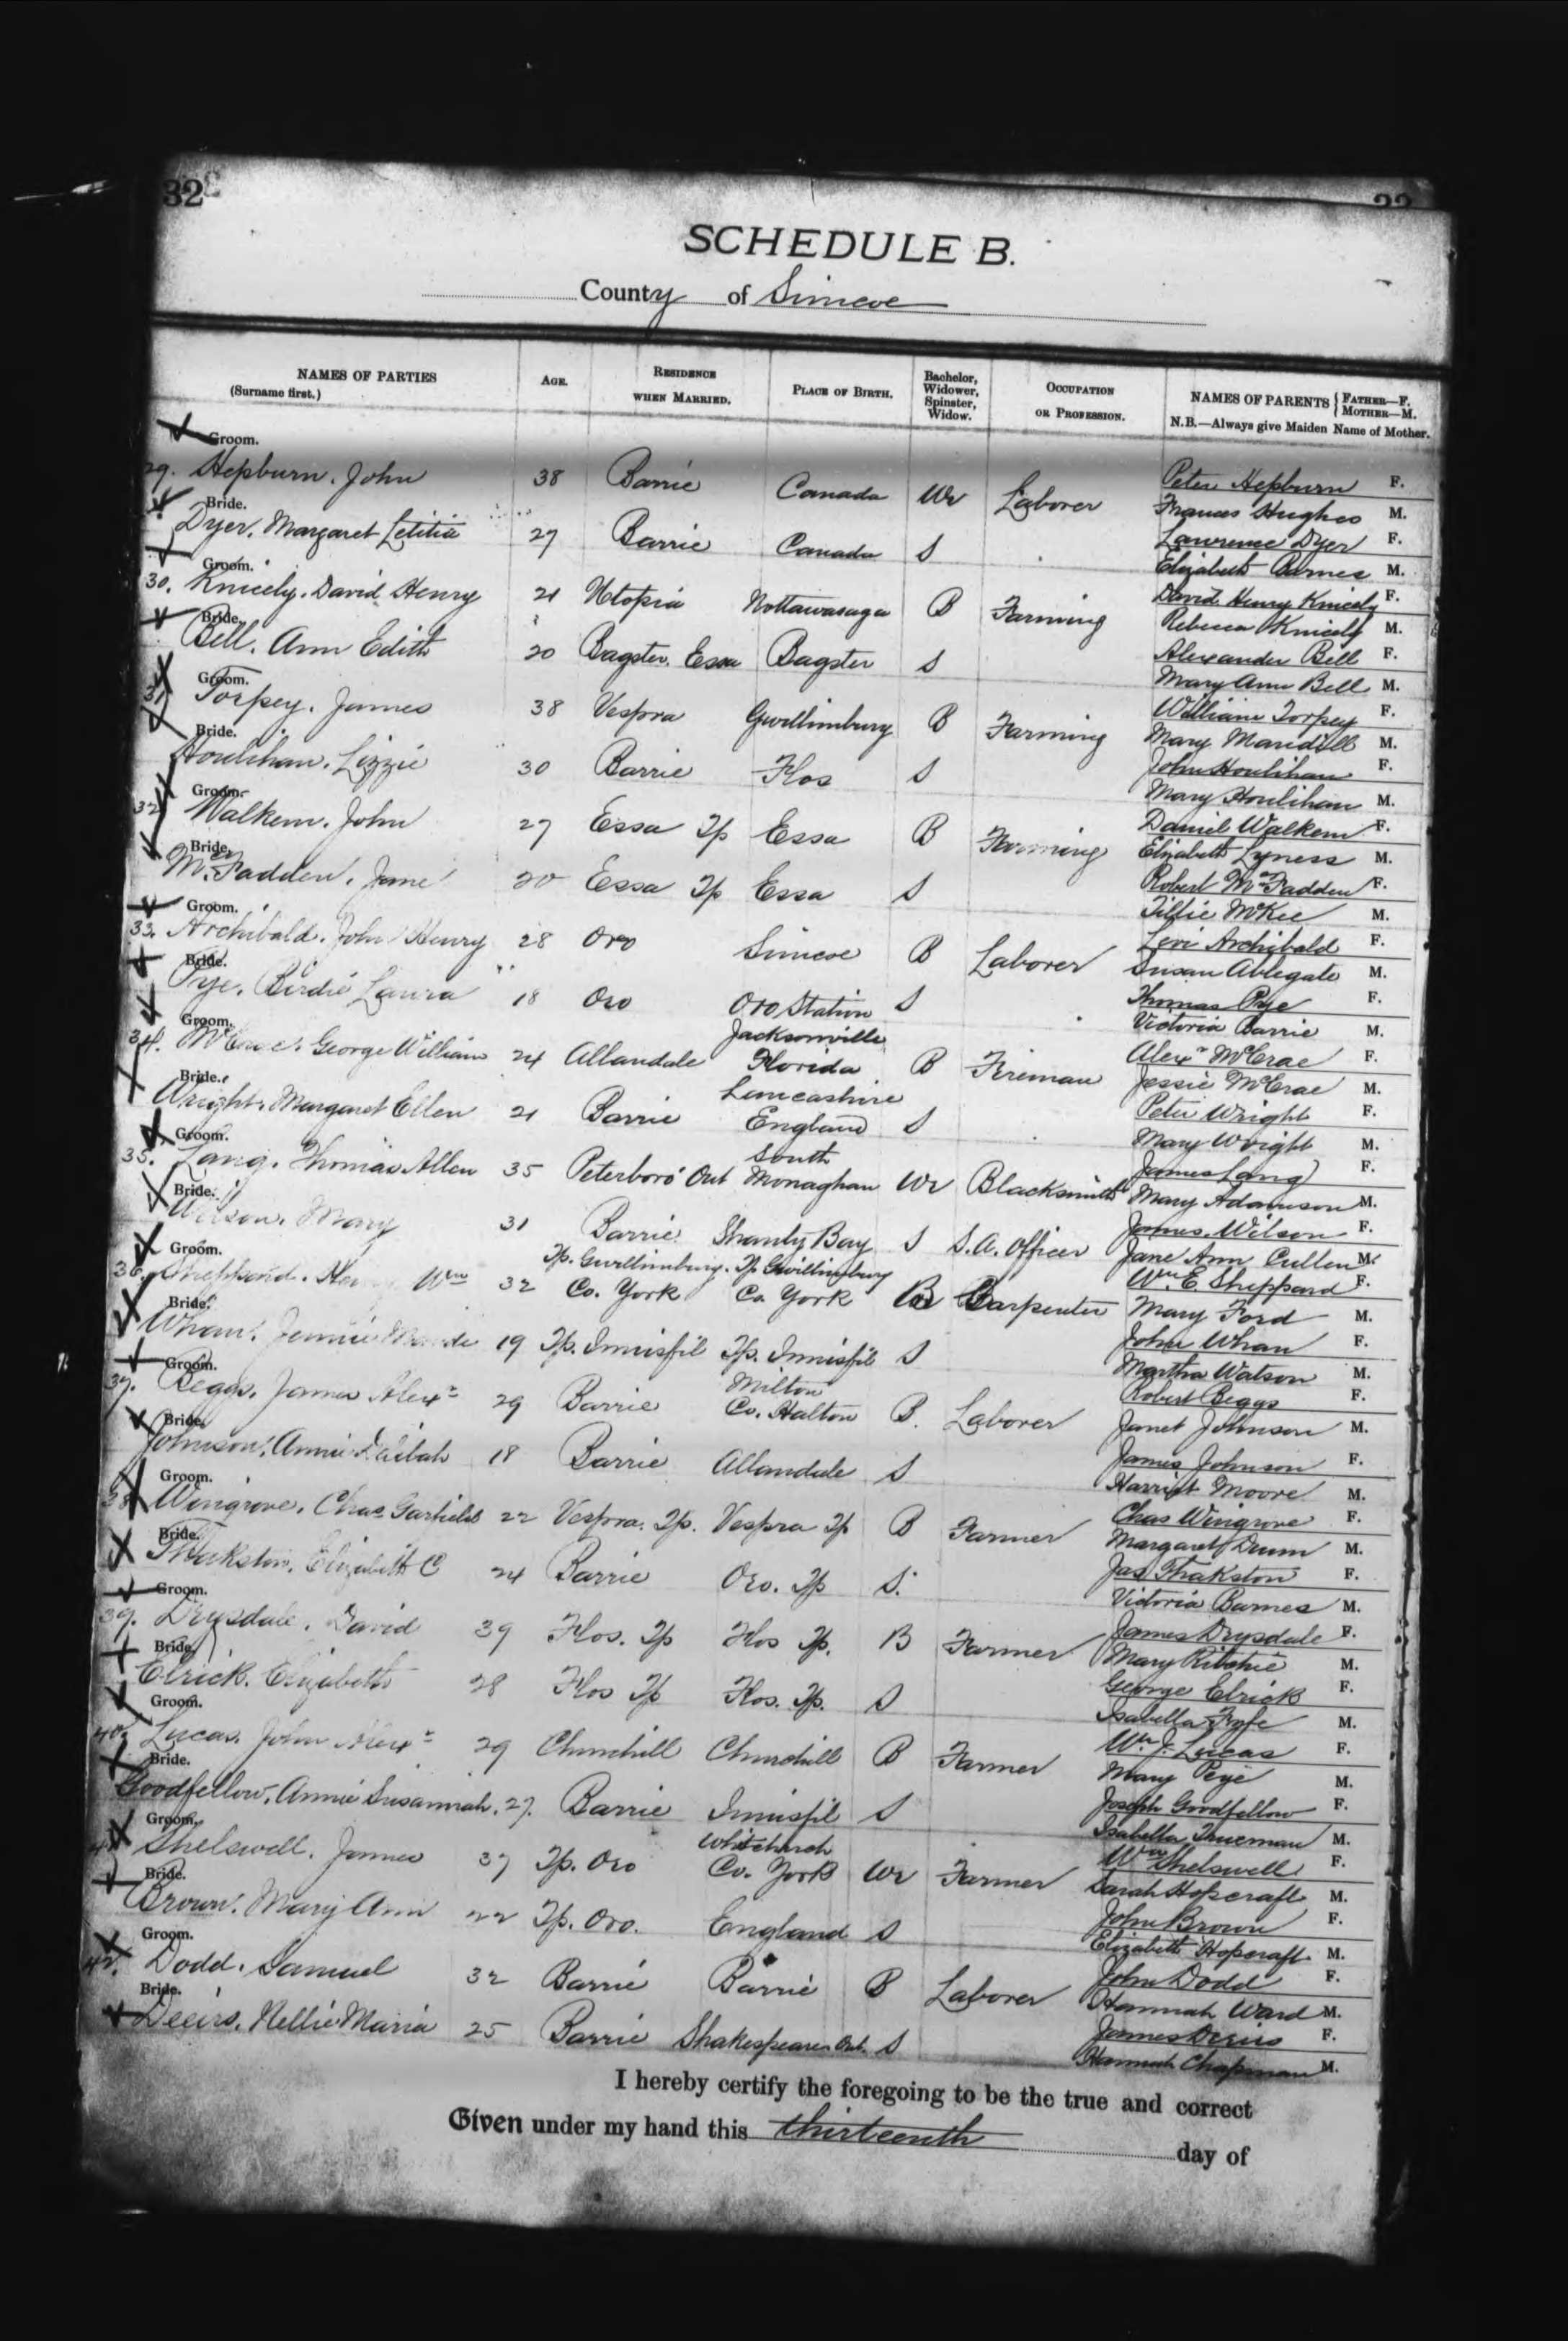 32
SCHEDULE B.
County of Simcoe
NAMES OF PARTIES (Surname first.) AGE. RESIDENCE WHEN MARRIED. PLACE OF BIRTH. Bachelor, Widower, Spinster, Widow. OCCUPATION OR PROFESSION. NAMES OF PARENTS { FATHER—F. MOTHER—M.
N.B.—Always give Maiden Name of Mother.
Groom.
29. Hepburn. John 38 Barrie Canada Wr Laborer Peter Hepburn F.
Frances Hughes M.
Bride.
Dyer. Margaret Letitia 27 Barrie Canada S Lawrence Dyer F.
Elizabeth Barnes M.
Groom.
30. Knicely. David Henry 21 Utopia Nottawasaga B Farming David Henry Knicely F.
Rebecca Knicely M.
Bride.
Bell. Ann Edith 20 Bagster. Essa Bagster S Alexander Bell F.
Mary Ann Bell M.
Groom.
31 Torpey. James 38 Vespra Gwillimbury B Farming William Torpey F.
Mary Mandill M.
Bride.
Houlihan. Lizzie 30 Barrie Flos S John Houlihan F.
Mary Houlihan M.
Groom.
32 Walkem. John 27 Essa Tp Essa B Farming Daniel Walkem F.
Elizabeth Lyness M.
Bride.
McFadden. Jane 20 Essa Tp Essa S Robert McFadden F.
Tillie McKee M.
Groom.
33. Archibald. John Henry 28 Oro Simcoe B Laborer Levi Archibald F.
Susan Ablegate M.
Bride.
Pye. Birdie Laura 18 Oro Oro Station S Thomas Pye F.
Victoria Barrie M.
Groom.
34. McCrae. George William 24 Allandale Jacksonville Florida B Fireman Alexr McCrae F.
Jessie McCrae M.
Bride.
Wright. Margaret Ellen 21 Barrie Lancashire England S Peter Wright F.
Mary Wright M.
Groom.
35. Lang. Thomas Allen 35 Peterboro' Ont South Monaghan Wr Blacksmith James Lang F.
Mary Adamson M.
Bride.
Wilson. Mary 31 Barrie Shanty Bay S S.A. Officer James Wilson F.
Jane Ann Cullen M.
Groom.
36. Sheppard. Henry Wm 32 Tp. Gwillimbury. Co. York Tp Gwillimbury Co York B Carpenter Wm E. Sheppard F.
Mary Ford M.
Bride.
Whan. Jennie Maude 19 Tp. Innisfil Tp. Innisfil S John Whan F.
Martha Watson M.
Groom.
37. Beggs. James Alexr 29 Barrie Milton Co. Halton B. Laborer Robert Beggs F.
Janet Johnson M.
Bride.
Johnson. Annie 18 Barrie Allandale S James Johnson F.
Harriet Moore M.
Groom.
38 Wingrove. Chas Garfield 22 Vespra. Tp. Vespra Tp B Farmer Chas Wingrove F.
Margaret Drum M.
Bride.
Thakston. Elizabeth C 24 Barrie Oro. Tp S. Jas Thakston F.
Victoria Barnes M.
Groom.
39. Drysdale. David 39 Flos. Tp Flos Tp. B Farmer James Drysdale F.
Mary Ritchie M.
Bride.
Elrick. Elizabeth 28 Flos Tp Flos. Tp. S George Elrick F.
Isabella Fyfe M.
Groom.
40. Lucas. John Alexr 29 Churchill Churchill B Farmer Wm J. Lucas F.
Mary M.
Bride.
Goodfellow. Annie Susannah. 27. Barrie Innisfil S Joseph Goodfellow F.
Isabella Trueman M.
Groom.
41 Shelswell. James 37 Tp. Oro Whitchurch Co. York Wr Farmer Wm Shelswell F.
Sarah Hopcraft M.
Bride.
Brown. Mary Ann 22 Tp. Oro. England S John Brown F.
Elizabeth Hopcraft. M.
Groom.
42. Dodd. Samuel 32 Barrie Barrie B Laborer John Dodd F.
Hannah Ward M.
Bride.
Nellie Maria 25 Barrie Shakespeare Ont. S James F.
Hannah Chapman M.
I hereby certify the foregoing to be the true and correct
Given under my hand this thirteenth day of